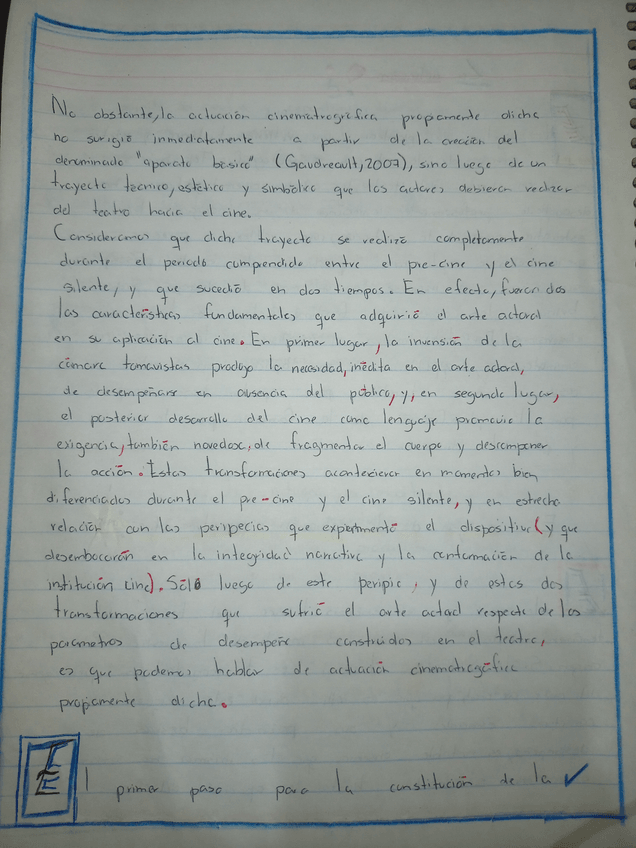 No obstante, la actuación cinematrográfica propamente dicha
no surigio inmediatamente a partir de la creación del
denominado "aparato basico" (Gaudreault, 2007), sino luego de un
trayecto tecnico, estético y simbolico que los actores debieron realizar
del teatro hacia el cine.
Consideramos que dicho trayecto se realizó completamente
durante el periodo compendido entre el pre-cine y el cine
silente, y que sucedió en dos tiempos. En efecto, fueron dos
las características fundamentales que adquirió el arte actoral
en su aplicación al cine. En primer lugar, la invension de la
cámara tomavistas produjo la necesidad, inédita en el arte actoral,
de desempeñars en ausencia del público, y, en segundo lugar,
el posterior desarrollo del cine como lenguaje promovio la
exigencia, también novedosa, de fragmentar el cuerpo y descomponer
la acción. Estas transformaciones acontecieron en momentos bien
diferenciados durante el pre-cine y el cine silente, y en estrecha
relación con las peripecias que experimentó el dispositivo (y que
desembocarán en la integridad narrativa y la conformación de la
institución cine). Sólo luego de este peripio, y de estas dos
transformaciones que sufrió el arte actoral respecto de los
parametros de desempeño construidos en el teatro,
es que podemos hablar de actuación cinematográfica
propiamente dicha.
El primer paso para la constitución de la ✓